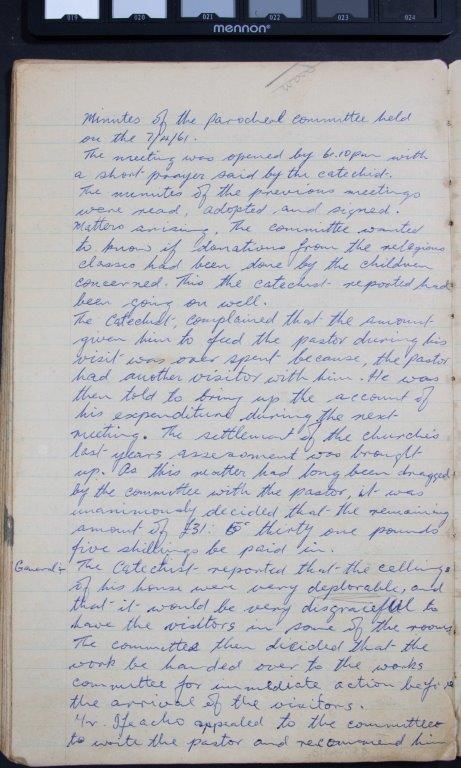 019 020 021 022 023 024
mennon
Minutes of the parocheal committee held
on the 7/4/61.
The meeting was opened by 6.10pm with
a short prayer said by the catechist.
The minutes of the previous meetings
were read, adopted and signed.
Matters arising, The committee wanted
to know if donations from the religious
classes had been done by the children
concerned. This the catechist reported had
been going on well.
The Catechist, complained that the amount
given him to feed the pastor during his
visit was over spent because, the Pastor
had another visitor with him. He was
then told to bring up the account of
his expenditure during the next
meeting. The settlement of the churches
last years assessment was brought
up. As this matter had long been dragged
by the committee with the pastor, it was
unanimously decided that the remaining
amount of £31: 5 thirty one pounds
five shillings be paid in.
General:- The Catechist reported that the ceilings
of his house were very deplorable, and
that it would be very disgraceful to
have the visitors in some of the rooms
The committee then decided that the
work be handed over to the works
committee for immediate action before
the arrival of the visitors.
Mr. appealed to the committee
to write the pastor and recommend him